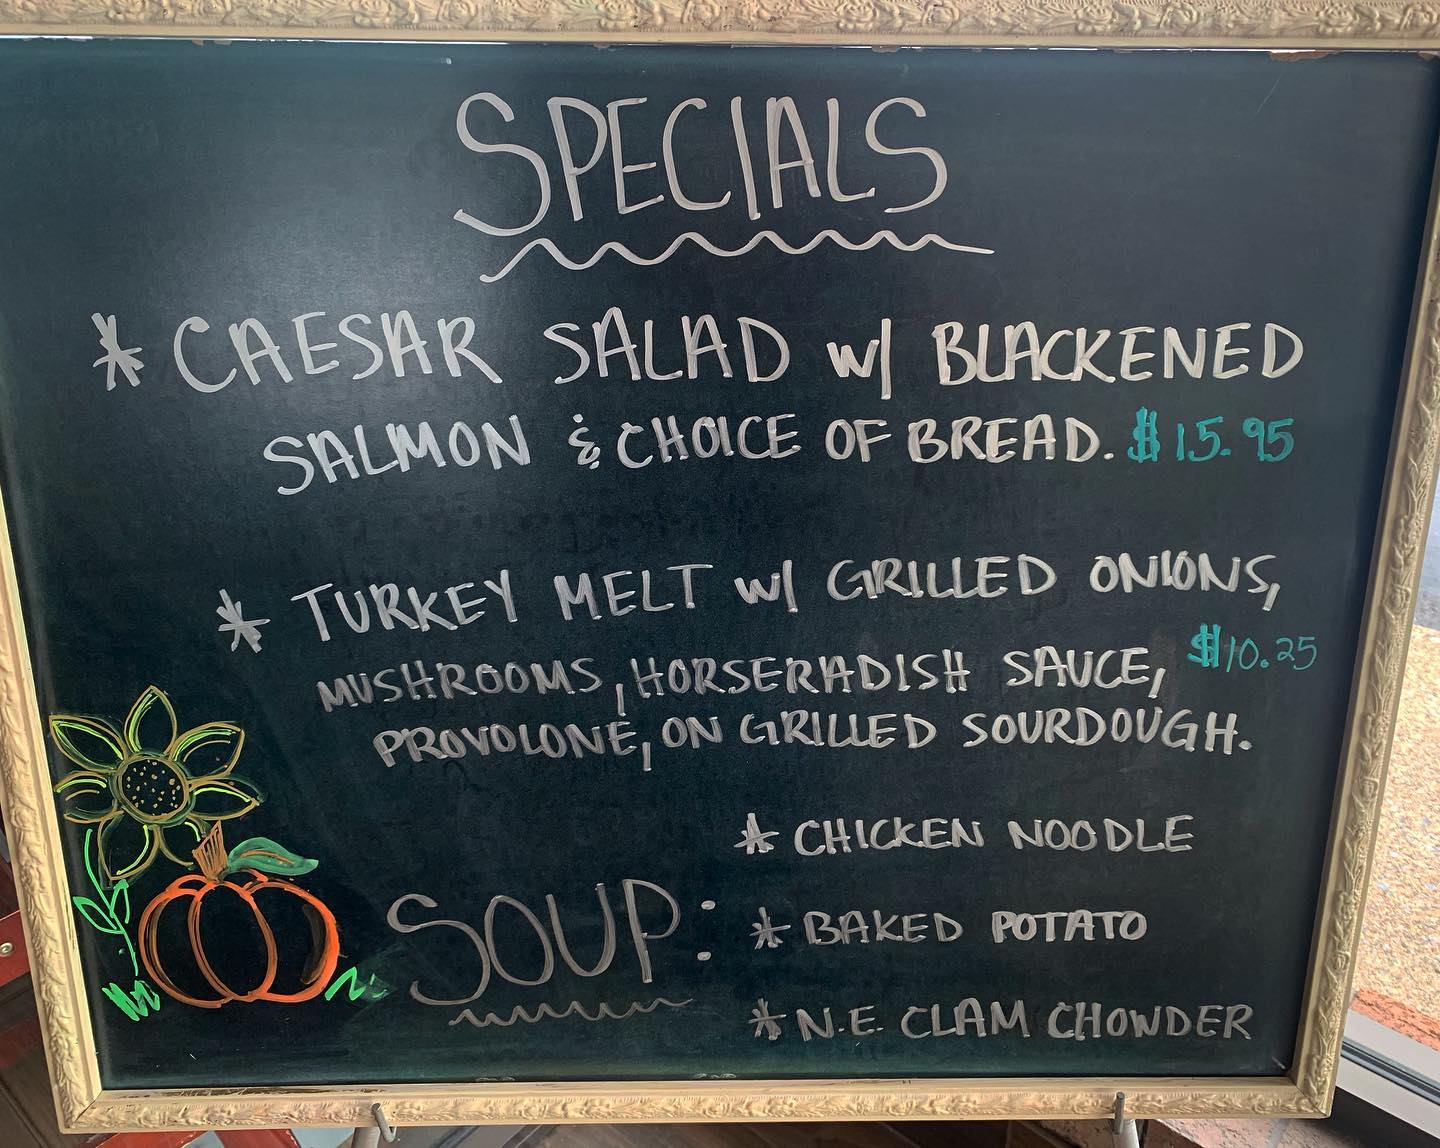 SPECIALS
* CAESAR SALAD w/ BLACKENED
SALMON & CHOICE OF BREAD. $15.95
* TURKEY MELT w/ GRILLED ONIONS,
MUSHROOMS, HORSERADISH SAUCE, $10.25
PROVOLONE, ON GRILLED SOURDOUGH.
SOUP:
* CHICKEN NOODLE
* BAKED POTATO
* N.E. CLAM CHOWDER